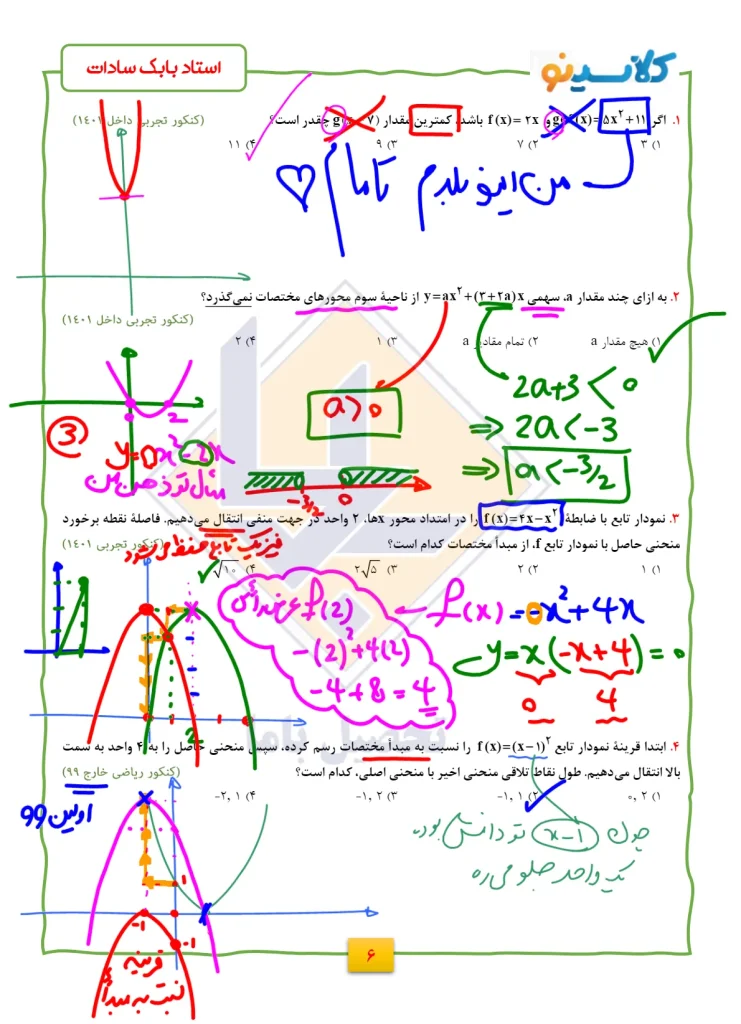 استاد بابک سادات
کلاسینو
۱. اگر g(f(x)) = ۵x²+۱۱ و f(x) = ۲x باشد، کمترین مقدار g(x − ۷) چقدر است؟
(کنکور تجربی داخل ۱۴۰۱)
۱) ۳ ۲) ۷ ۳) ۹ ۴) ۱۱
من اینو بلدم تامام ♡
۲. به ازای چند مقدار a، سهمی y=ax²+(۳+۲a)x از ناحیهٔ سوم محورهای مختصات نمی‌گذرد؟
(کنکور تجربی داخل ۱۴۰۱)
۱) هیچ مقدار a ۲) تمام مقادیر a ۳) ۱ ۴) ۲
a > 0
2a+3 < 0
⇒ 2a < -3
⇒ a < -3/2
-3/2 0
0 2
3
y=x²-2x
مثال تو ذهن من
۳. نمودار تابع با ضابطهٔ f(x)=۴x−x² را در امتداد محور xها، ۲ واحد در جهت منفی انتقال می‌دهیم. فاصلهٔ نقطه برخورد
منحنی حاصل با نمودار تابع f، از مبدأ مختصات کدام است؟
(کنکور تجربی ۱۴۰۱)
فیزیک تابع حفظ می‌شود
۱) ۱ ۲) ۲ ۳) ۲√۵ ۴) √۱۰
f(x) = -x²+4x
y = x(-x+4) = 0
0 4
عرض رأس f(2)
-(2)²+4(2)
-4+8 = 4
2
۴. ابتدا قرینهٔ نمودار تابع f(x)=(x−۱)² را نسبت به مبدأ مختصات رسم کرده، سپس منحنی حاصل را به ۴ واحد به سمت
بالا انتقال می‌دهیم. طول نقاط تلاقی منحنی اخیر با منحنی اصلی، کدام است؟
(کنکور ریاضی خارج ۹۹)
۱) ۰, ۲ ۲) −۱, ۱ ۳) −۱, ۲ ۴) −۲, ۱
اولین 99
چون x-1 تو دانش بود
یک واحد جلو می‌ره
1
-1
-1
قرینه
نسبت به مبدأ
تحصیل باما
۶